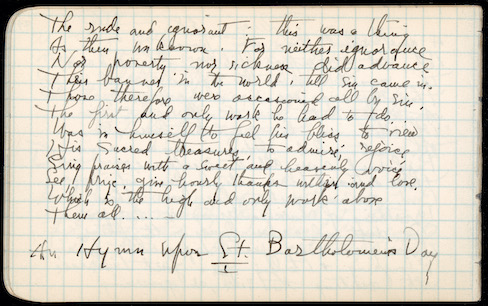 The rude and ignorant: this was a thing
As then unknown. For neither ignorance
Nor poverty nor sickness did advance
Their banner in the world, till sin came in.
Those therefore were occasioned all by sin.
The first and only work he had to do,
Was in himself to feel his bliss, to view
His sacred treasures, to admire, rejoice
Sing praises with a sweet and heavenly voice
See, prize, give hourly thanks within and love.
Which is the high and only work above
Them all. .....
An Hymn upon St. Bartholomew's Day